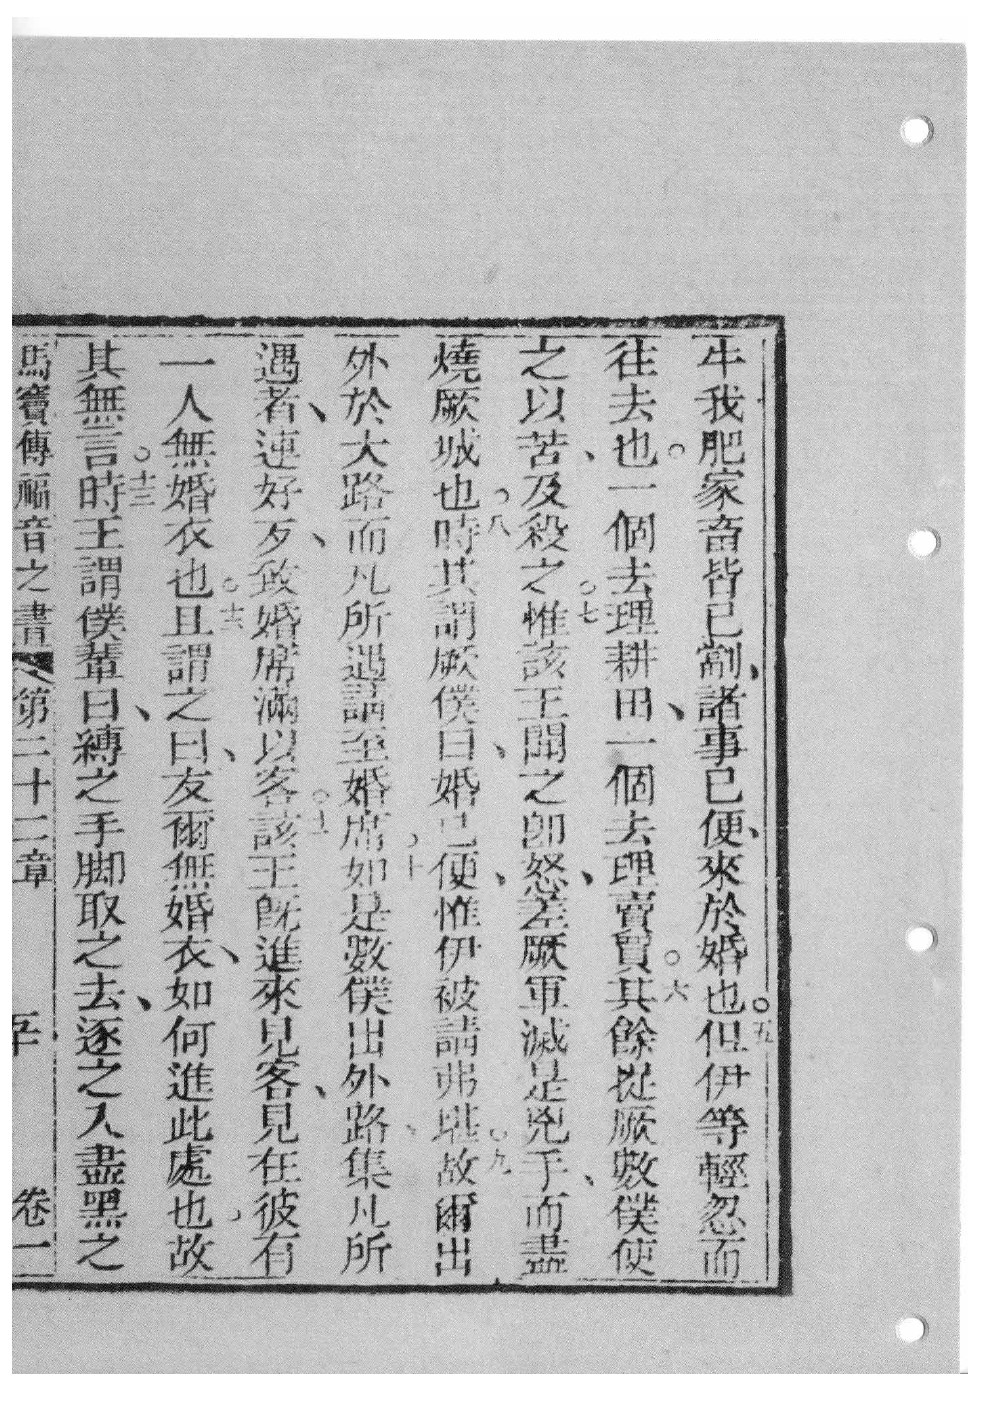 牛我肥家畜皆已劏、諸事已便、來於婚也。五但伊等輕忽而
往去也。一個去理耕田、一個去理賣買。六其餘捉厥數僕使
之以苦、及殺之。七惟該王聞之卽怒、差厥軍滅是兇手、而盡
燒厥城也。八時其謂厥僕曰、婚已便、惟伊被請弗堪。九故爾出
外於大路而凡所遇請至婚席。十如是數僕出外路、集凡所
遇者、連好歹、致婚席滿以客。十一該王旣進來見客、見在彼有
一人無婚衣也。十二且謂之曰、友爾無婚衣、如何進此處也。故
其無言。十三時王謂僕輩曰、縛之手脚取之去、逐之入盡黑之
馬竇傳福音之書 第二十二章 五十 卷一